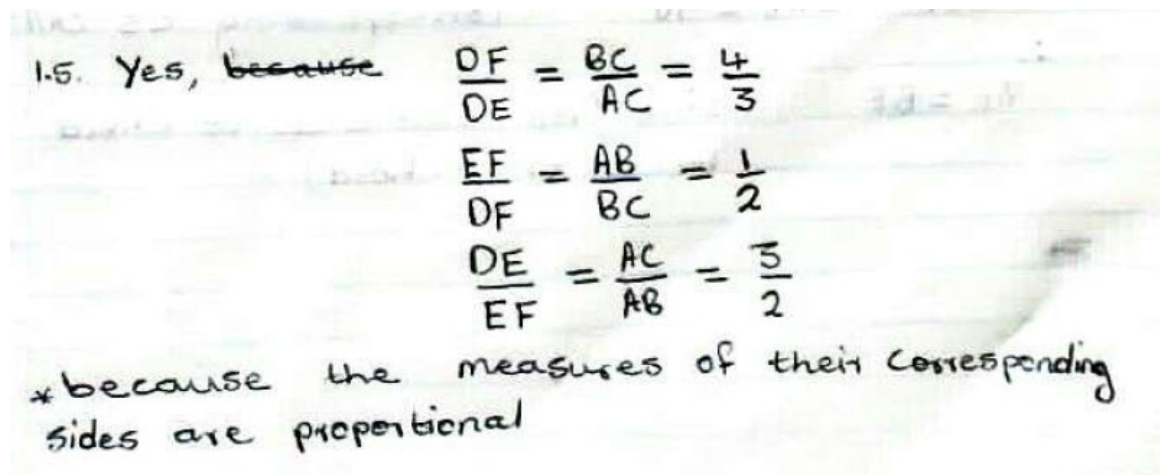 1.5. Yes, because DF/DE = BC/AC = 4/3
EF/DF = AB/BC = 1/2
DE/EF = AC/AB = 3/2
*because the measures of their corresponding
sides are proportional